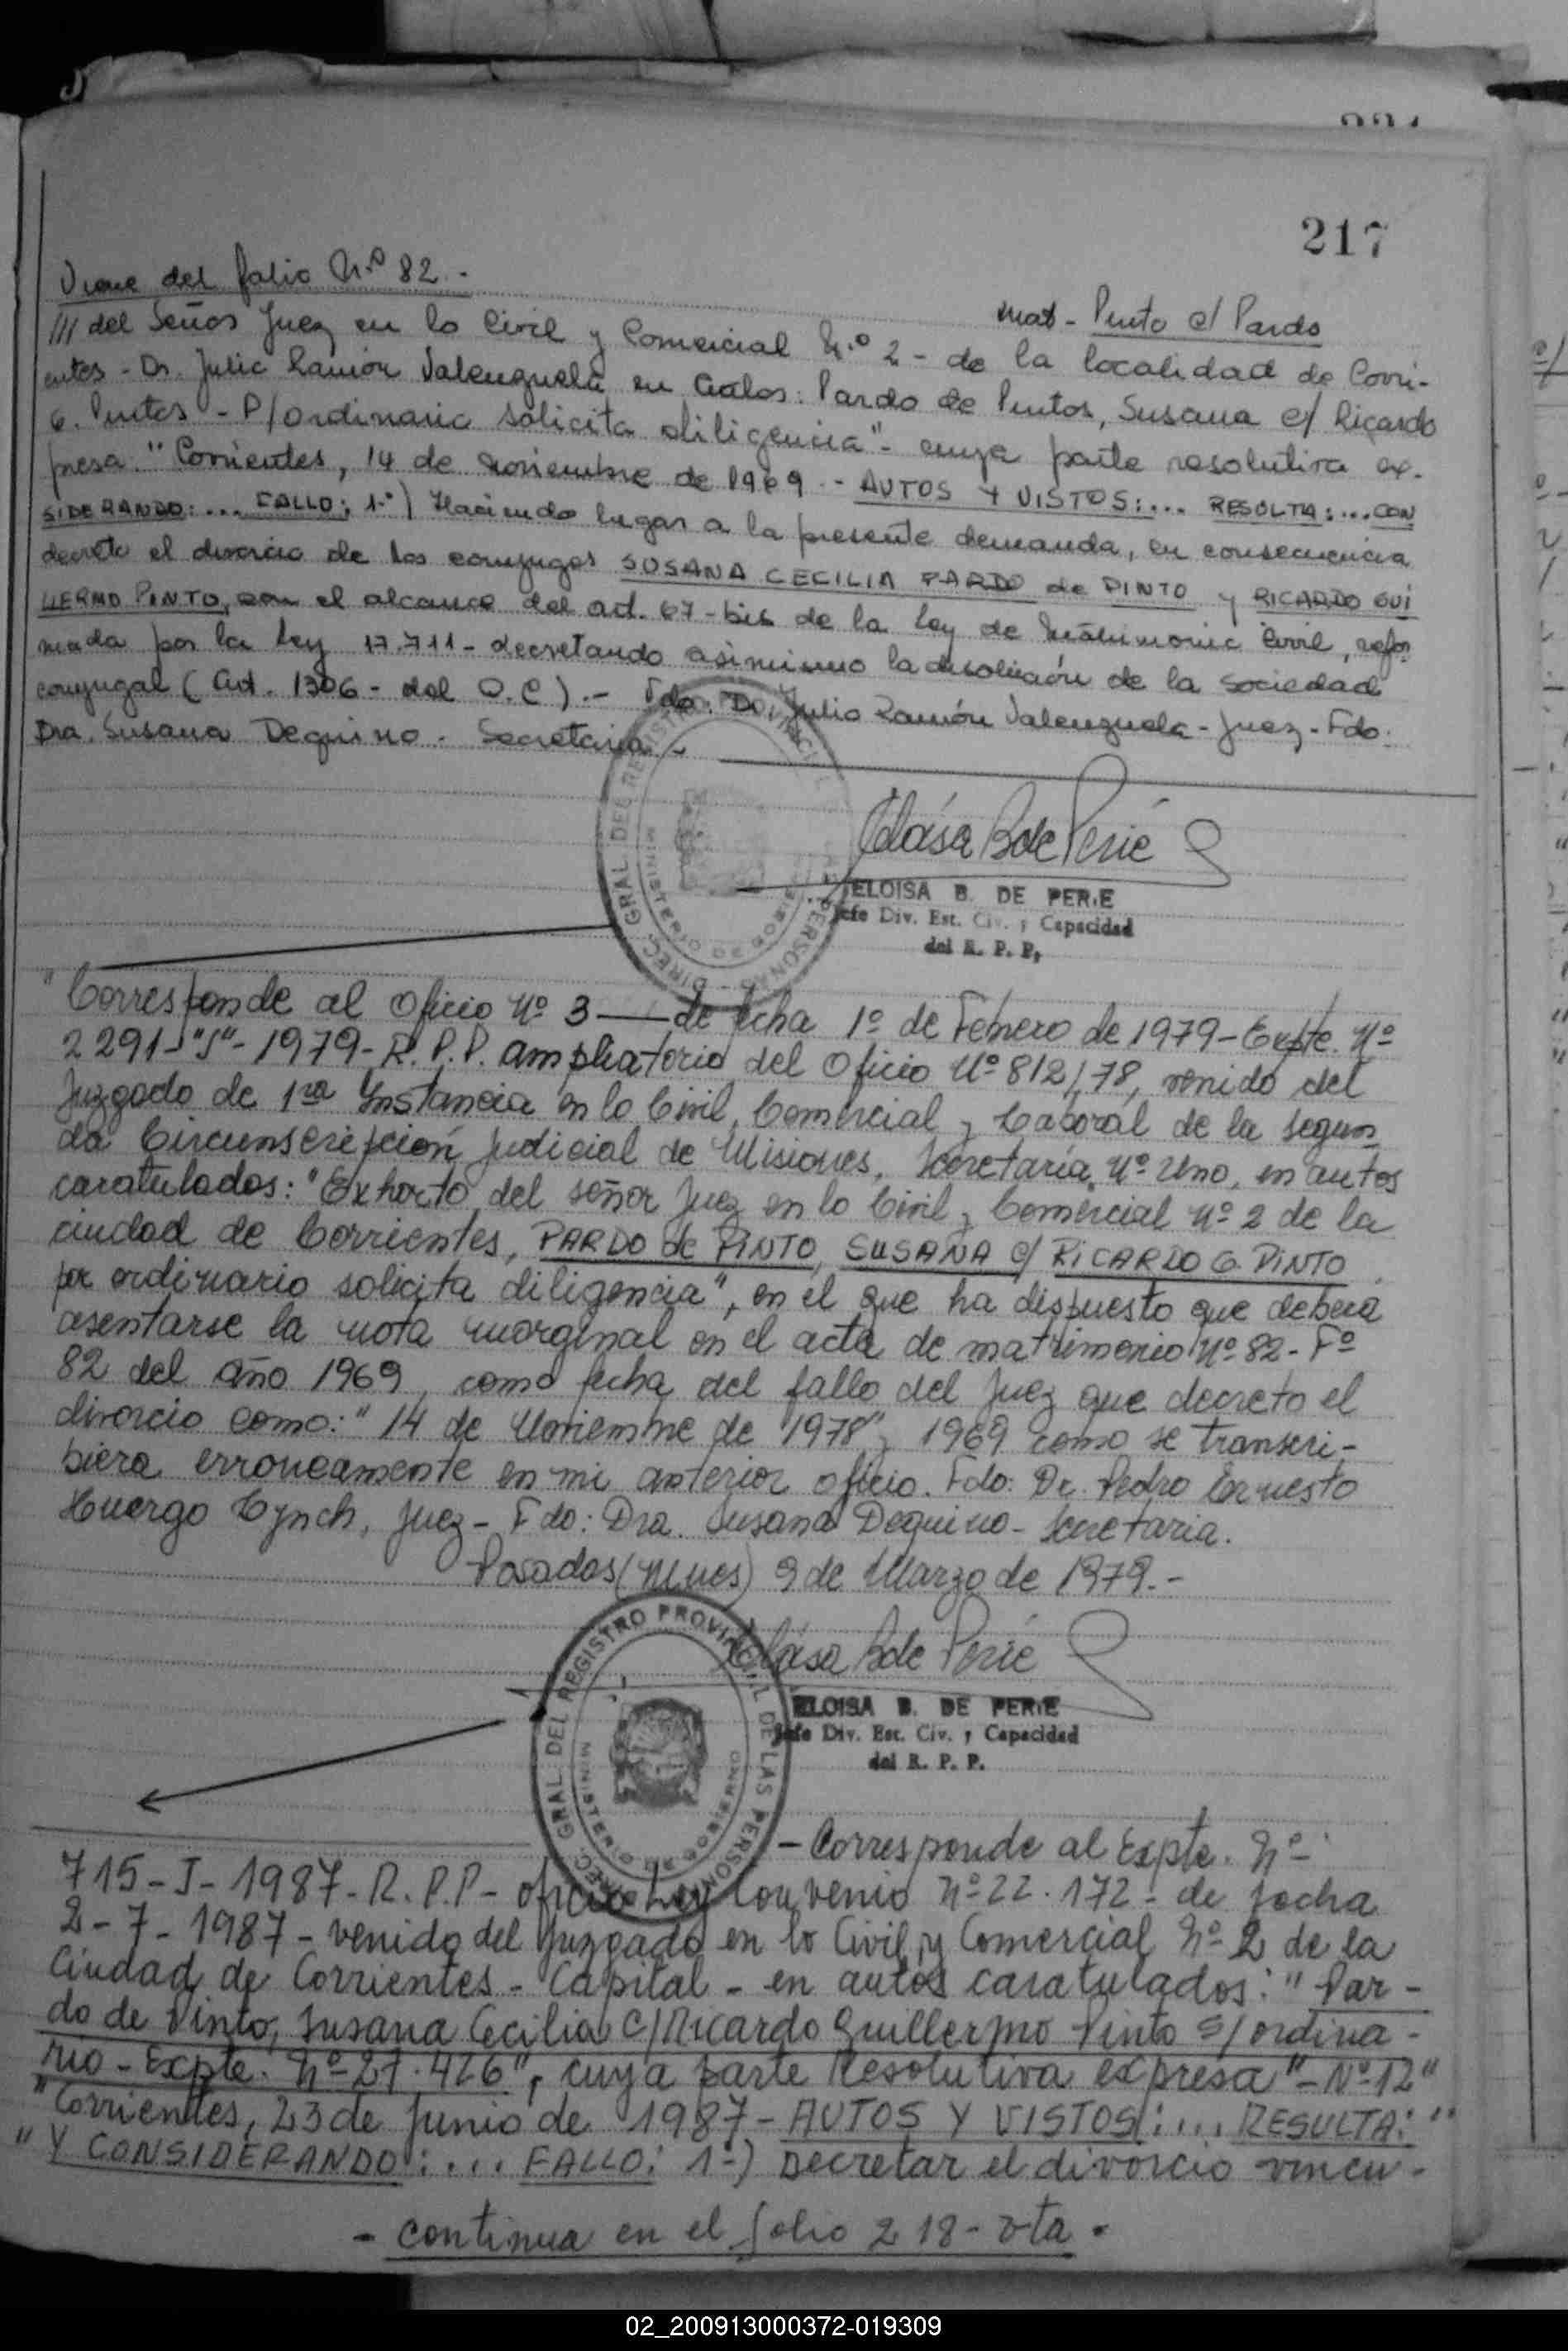 217
Viene del folio N.º 82.-
Mat- Pinto c/ Pardo
/// del Señor Juez en lo Civil y Comercial N.º 2 - de la localidad de Corri-
entes - Dr. Julio Ramón Valenzuela en Autos: Pardo de Pintos, Susana c/ Ricardo
G. Pintos - P/ordinario solicita diligencia"- cuya parte resolutiva ex-
presa: "Corrientes, 14 de noviembre de 1969 - AUTOS Y VISTOS:... RESULTA:... CON
SIDERANDO:... FALLO: 1.º) Haciendo lugar a la presente demanda, en consecuencia
decreto el divorcio de los conyuges SUSANA CECILIA PARDO de PINTO y RICARDO GUI
LLERMO PINTO, con el alcance del art. 67-bis de la Ley de Matrimonio Civil, refor
mada por la Ley 17.711- decretando asimismo la disolución de la Sociedad
conyugal (art. 1306 - del C.C).- Fdo: Dr. Julio Ramón Valenzuela - Juez - Fdo.
Dra. Susana Dequino. Secretaria.-
ELOISA B. DE PERIE
Jefe Div. Est. Civ. y Capacidad
del R. P. P.
DIREC. GRAL. DEL REGISTRO PROVINCIAL DE LAS PERSONAS
MINISTERIO DE GOBIERNO
"Corresponde al Oficio Nº 3 — de fecha 1º de Febrero de 1979 - Expte. Nº
2291-"J"- 1979- R.P.P. ampliatorio del Oficio Nº 812/78, venido del
Juzgado de 1ra Instancia en lo Civil, Comercial y Laboral de la Segun
da Circunscripción Judicial de Misiones, Secretaría Nº Uno, en autos
caratulados: "Exhorto del señor Juez en lo Civil y Comercial Nº 2 de la
ciudad de Corrientes, PARDO de PINTO, SUSANA c/ RICARDO G. PINTO
por ordinario solicita diligencia", en el que ha dispuesto que deberá
asentarse la nota marginal en el acta de matrimonio Nº 82- Fº
82 del año 1969, como fecha del fallo del Juez que decreto el
divorcio como: "14 de Noviembre de 1978" y 1969 como se transcri-
biera erroneamente en mi anterior oficio. Fdo: Dr. Pedro Ernesto
Huergo Lynch, Juez - Fdo: Dra. Susana Dequino - Secretaria.
Posadas (Mnes) 9 de Marzo de 1979.-
ELOISA B. DE PERIE
Jefe Div. Est. Civ. y Capacidad
del R. P. P.
DIREC. GRAL. DEL REGISTRO PROVINCIAL DE LAS PERSONAS
MINISTERIO DE GOBIERNO
- Corresponde al Expte. Nº
715-J-1987-R.P.P- oficio Ley Convenio Nº 22.172- de fecha
2-7-1987- venido del Juzgado en lo Civil y Comercial Nº 2 de la
Ciudad de Corrientes - Capital - en autos caratulados: "Par-
do de Pinto, Susana Cecilia c/ Ricardo Guillermo Pinto s/ ordina-
rio - Expte. Nº 27.426", cuya parte Resolutiva expresa "- Nº 12"
"Corrientes, 23 de Junio de 1987- AUTOS Y VISTOS:... RESULTA:"
"Y CONSIDERANDO:... FALLO: 1º) Decretar el divorcio vincu-
- continua en el folio 218- vta -
02_200913000372-019309